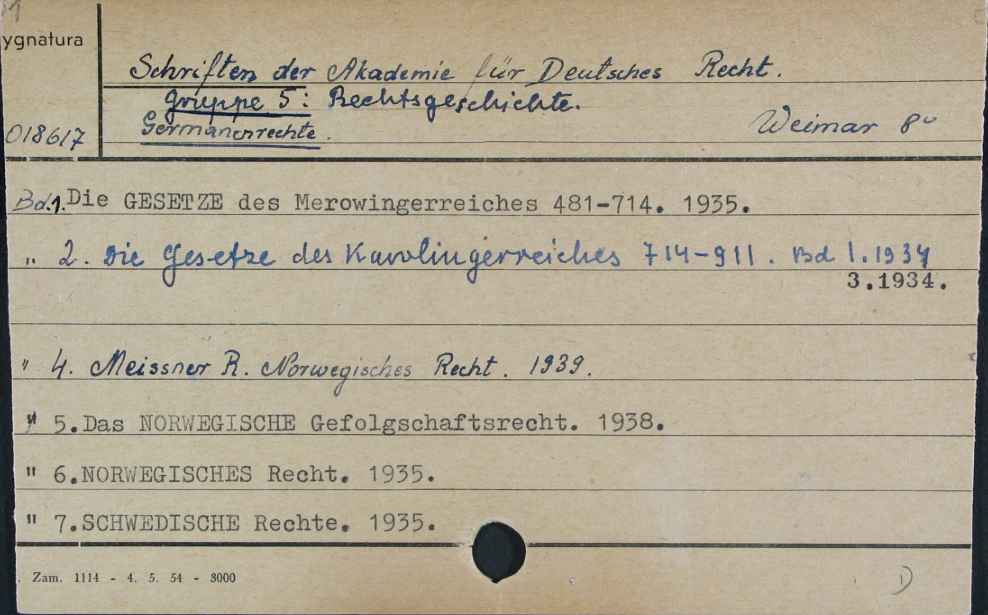 ygnatura
Schriften der Akademie für Deutsches Recht.
Gruppe 5: Rechtsgeschichte.
Germanenrechte.
Weimar 8°
018617
Bd.1. Die GESETZE des Merowingerreiches 481-714. 1935.
" 2. Die Gesetze des Karolingerreiches 714-911. Bd 1. 1934
3.1934.
" 4. Meissner R. Norwegisches Recht. 1939.
" 5. Das NORWEGISCHE Gefolgschaftsrecht. 1938.
" 6. NORWEGISCHES Recht. 1935.
" 7. SCHWEDISCHE Rechte. 1935.
Zam. 1114 - 4. 5. 54 - 3000